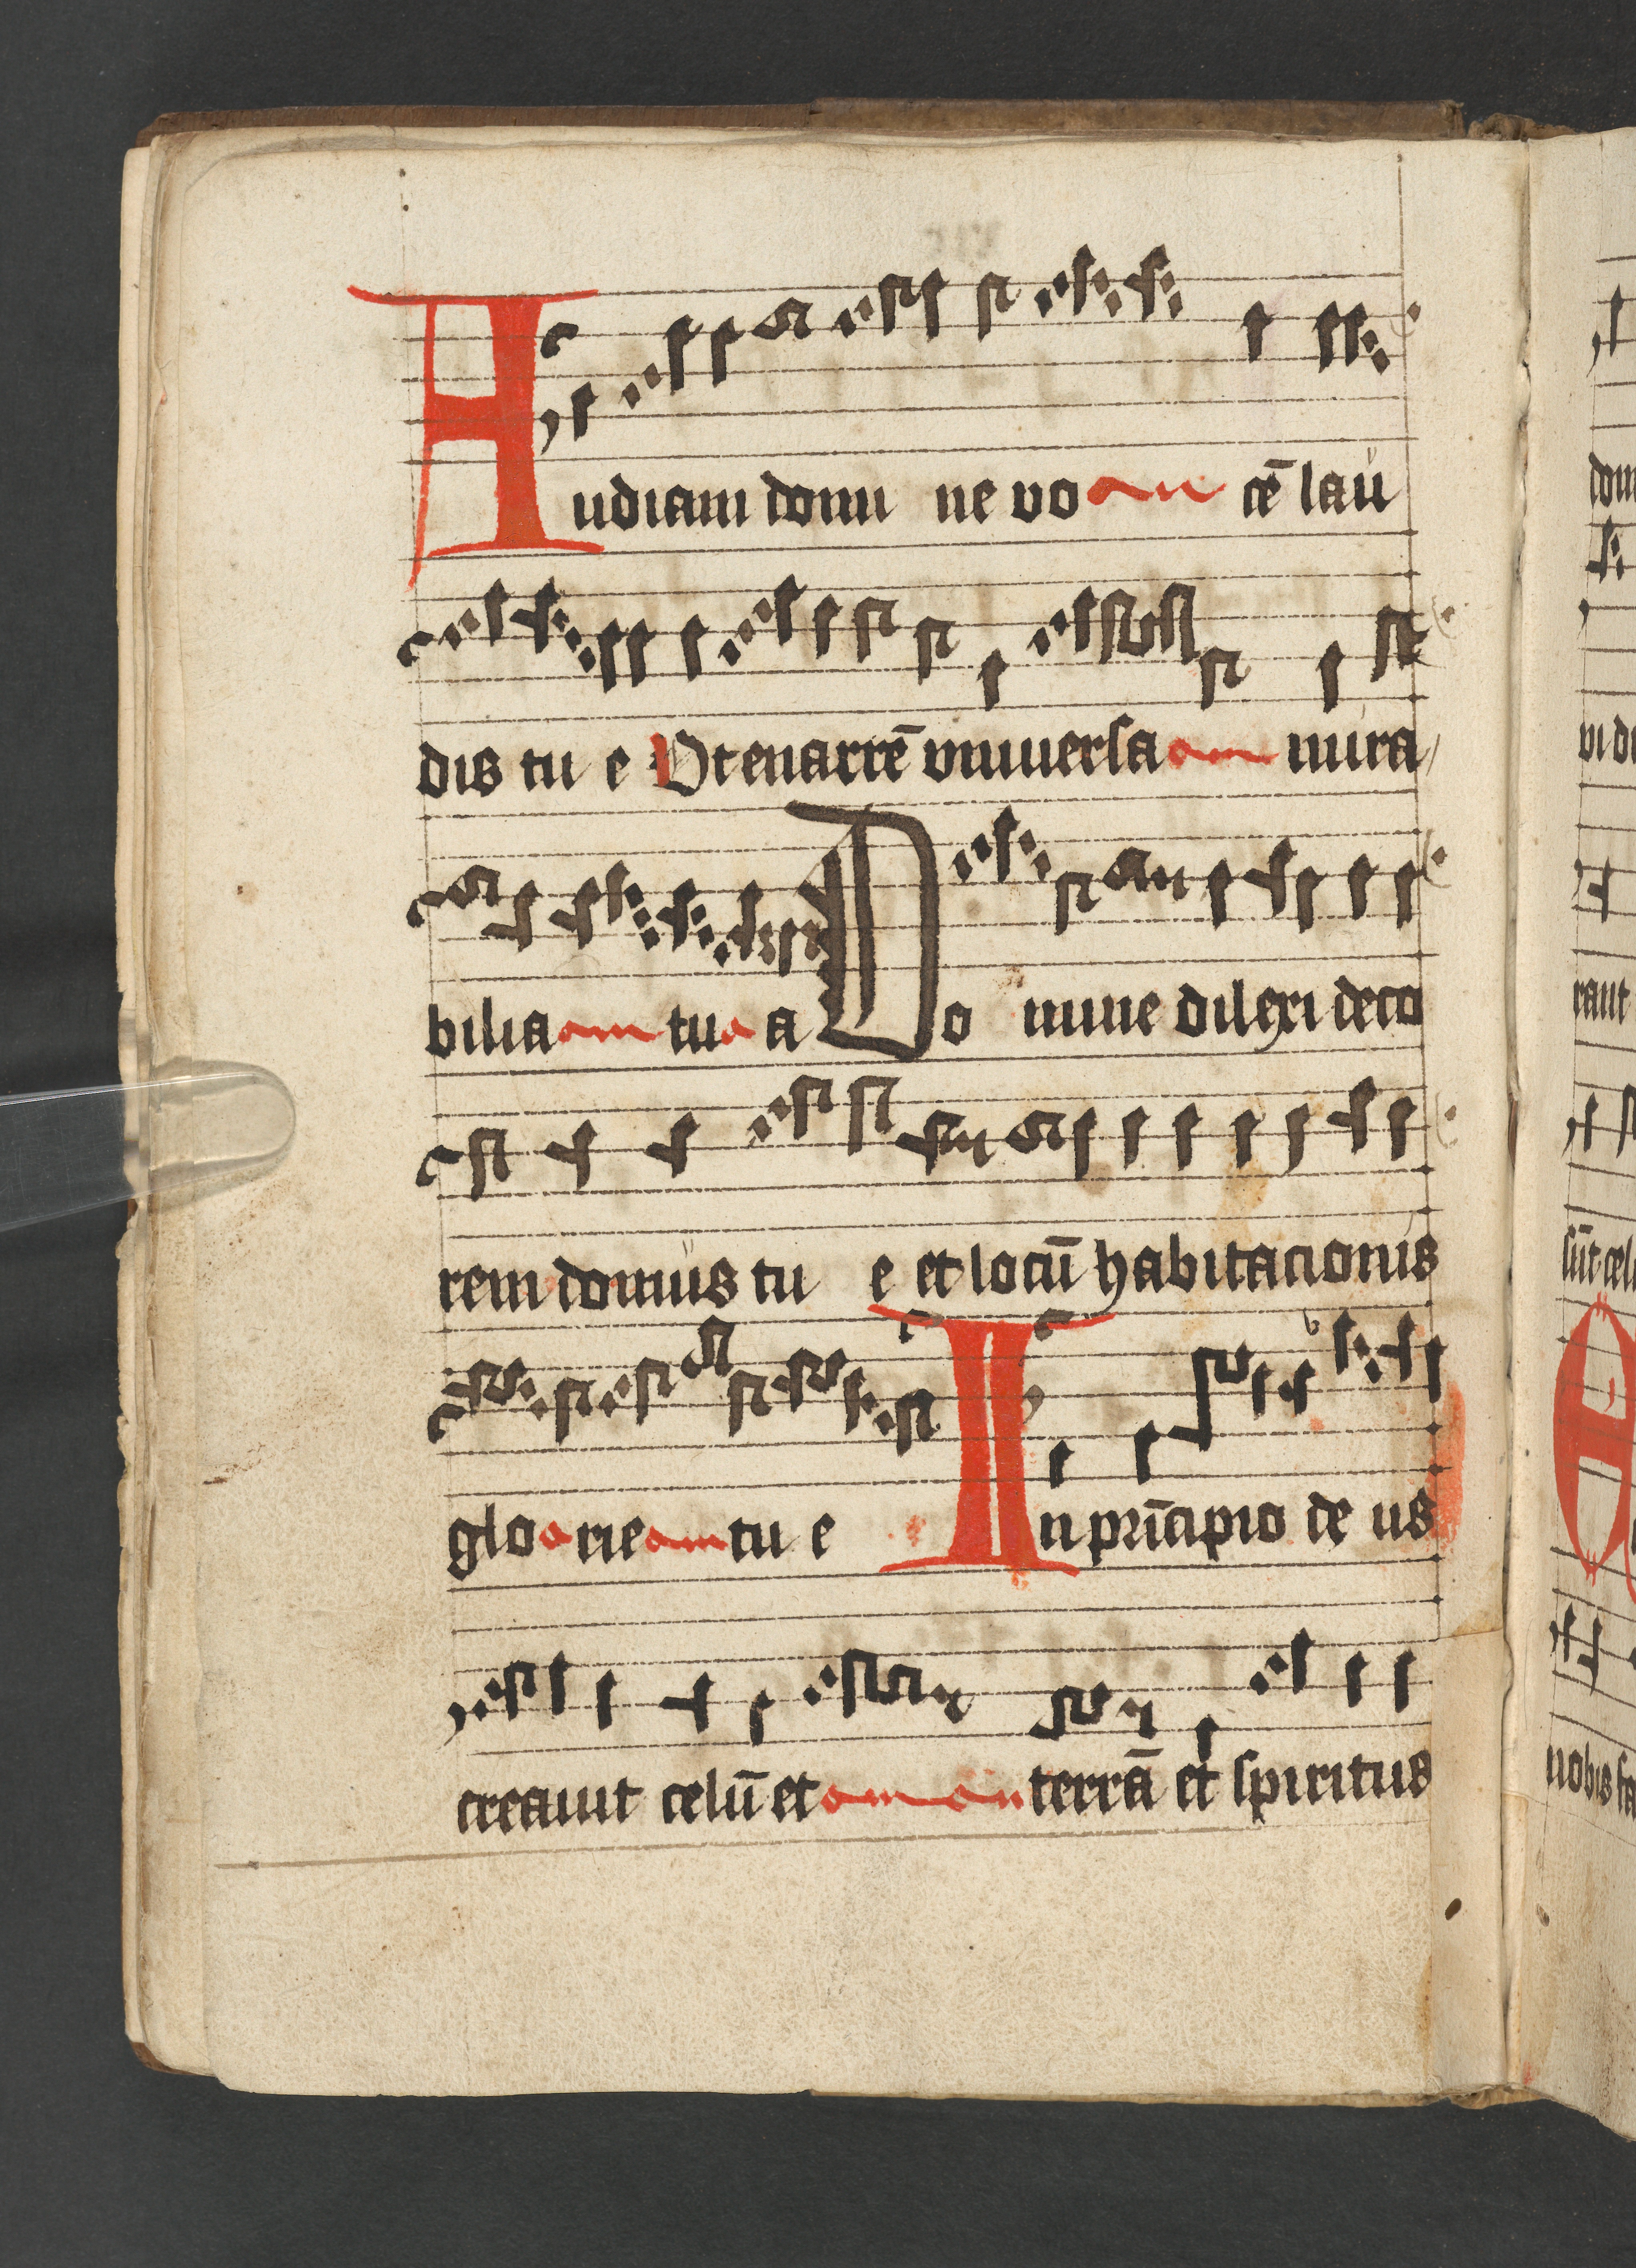 Audiam domi ne vo cē lau
dis tu e Vt enarrē vniuersa mira
bilia tu a Do mine dilexi deco
rem domus tu e et locū habitacionis
glo rie tu e In prīcipio de us
creauit celū et terrā et spiritus
dom
vi di
raut
sūt cel
nobis fa